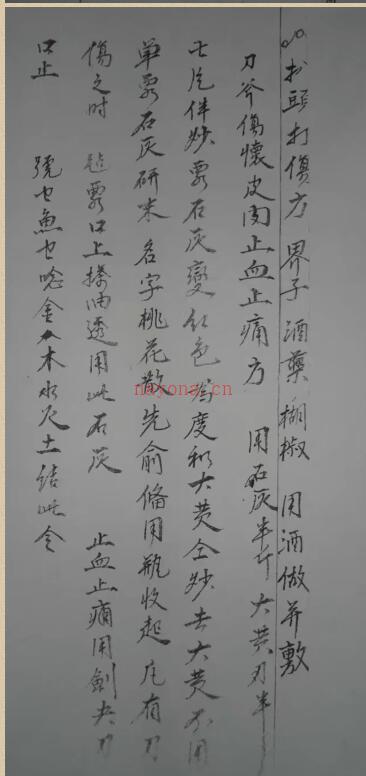 扑頭打傷方 界子 酒藥 糊椒 用酒做并敷
刀斧傷懷皮肉止血止痛方 用石灰半斤 大黄刃半
七片伴炒 要石灰變红色為度和大黄仝炒去大黄不用
单要石灰研末 名字桃花散先俞俻用瓶收起 凡有刀
傷之时 要口上搽油透用此石灰 止血止痛用劍夬刀
口止 魚也唸金木水火土結此令
nayona.cn